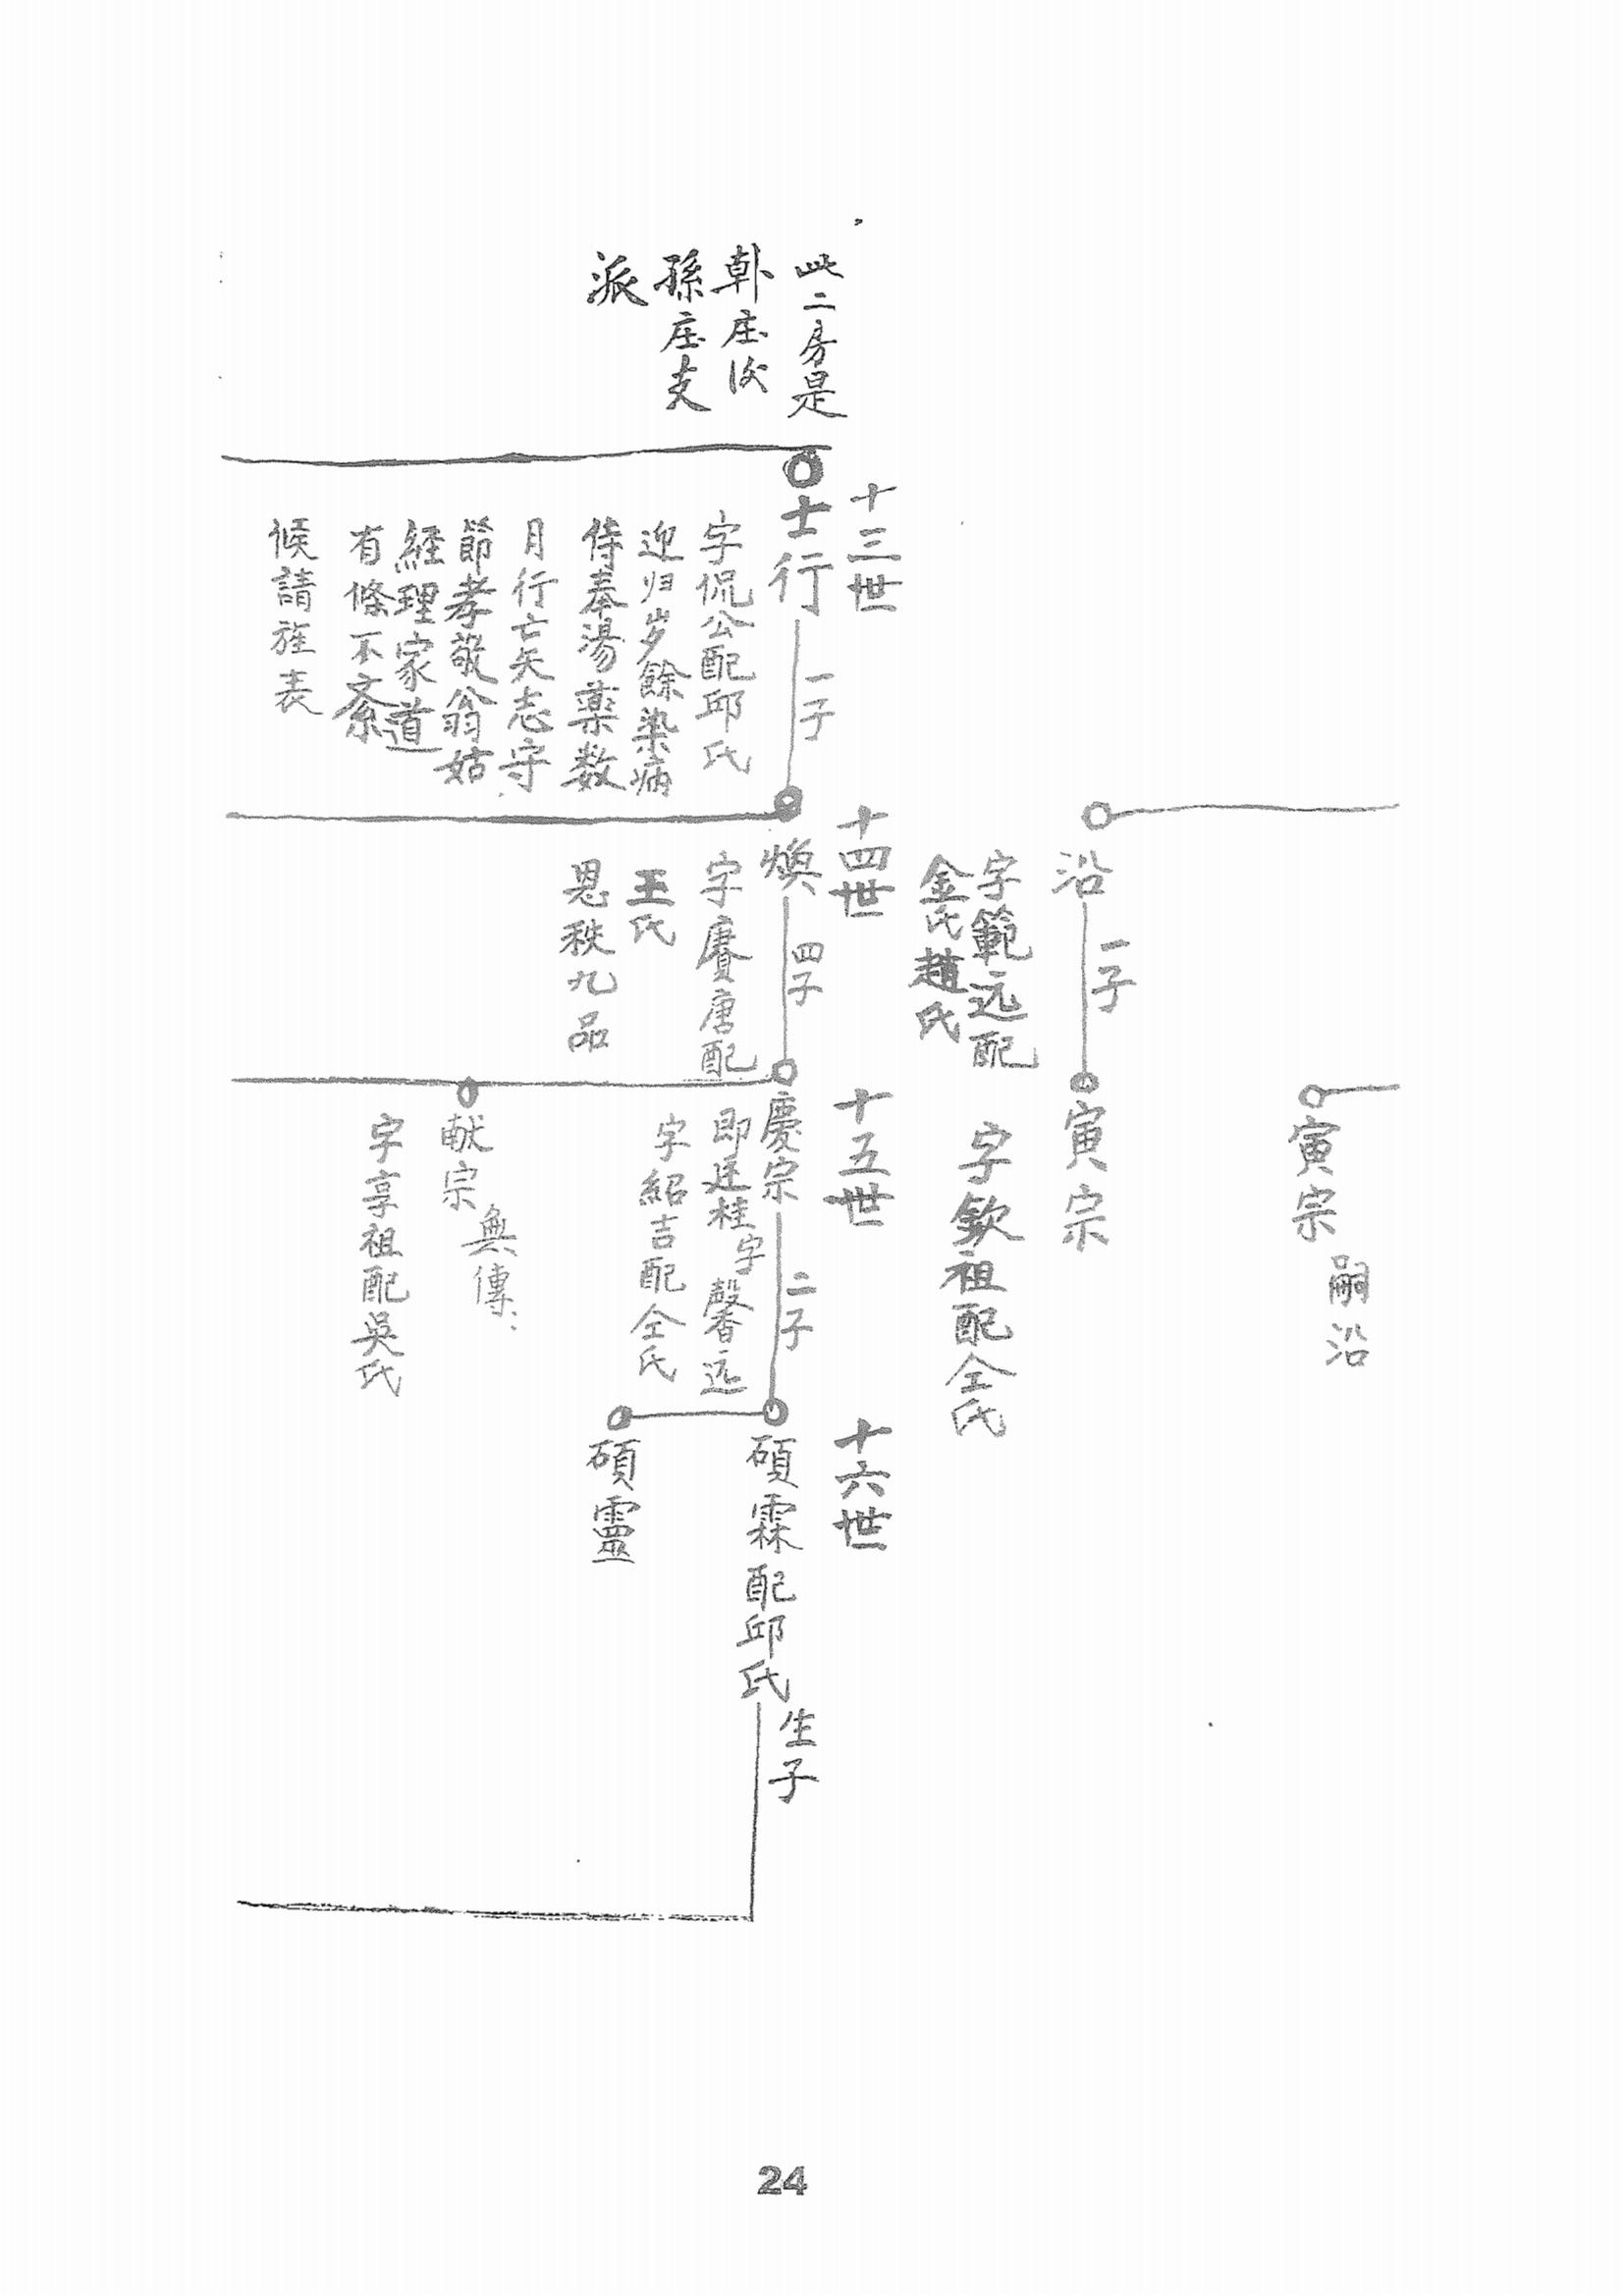 此二房是
庄後
孫庄支
派
十三世
士行
一子
字侃公配邱氏
迎归岁餘染病
侍奉湯藥数
月行亡矢志守
節孝敬翁姑
經理家道
有條不紊
候請旌表
十四世
煥
四子
字賡唐配
王氏
恩秩九品
沿
一子
字範远配
金氏趙氏
十五世
慶宗
二子
即廷桂字馨远
字紹吉配仝氏
献宗
無傳
字享祖配吳氏
寅宗
字欽祖配仝氏
寅宗
嗣沿
十六世
碩霖配邱氏
生子
碩靈
24